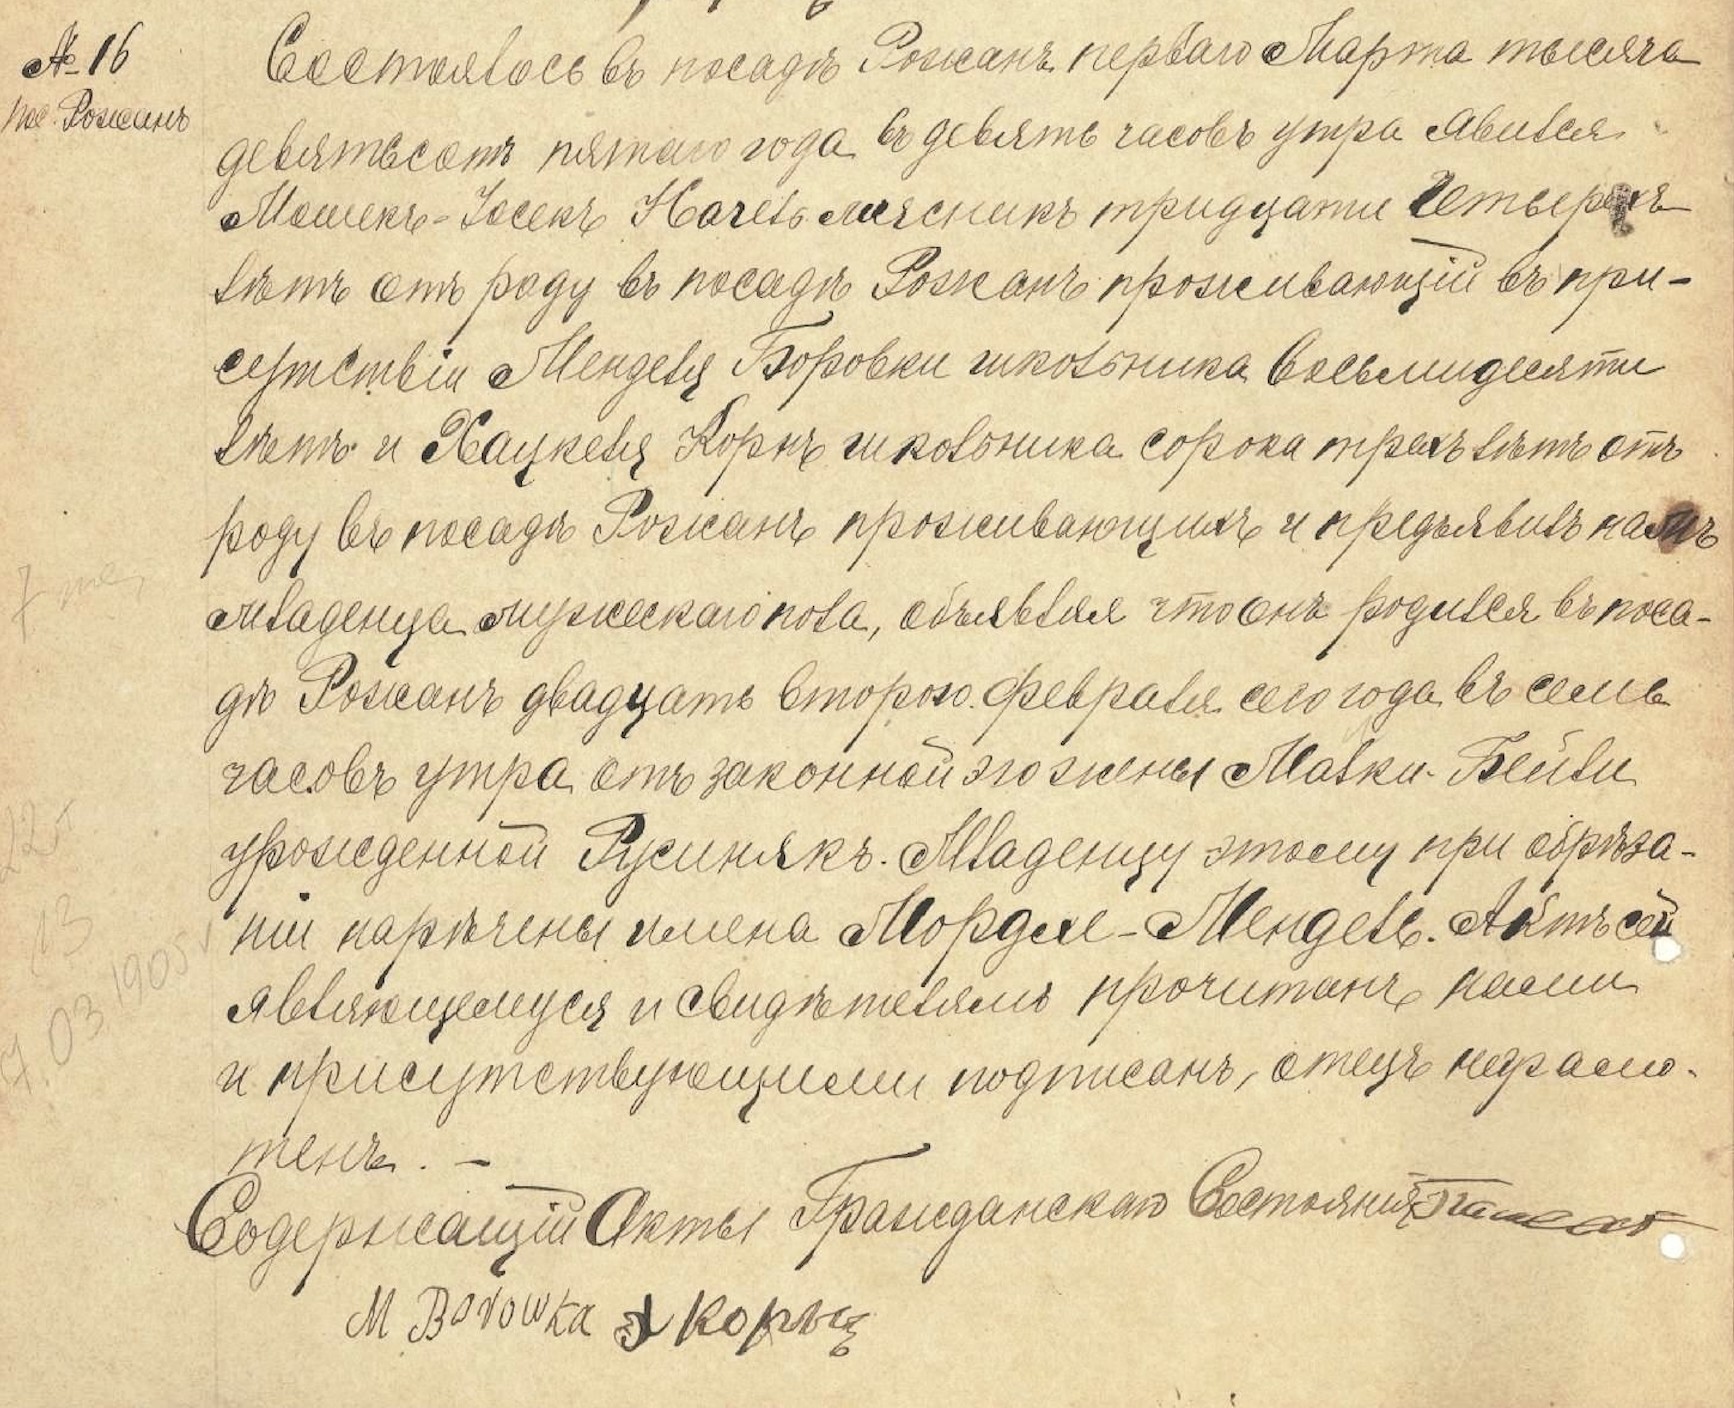 № 16
пос. Рожанъ
Состоялось въ посадѣ Рожанъ перваго Марта тысяча
девятьсотъ пятаго года въ девять часовъ утра явился
Мошекъ-Іосекъ Начель мясникъ тридцати четырехъ
лѣтъ отъ роду въ посадѣ Рожанъ проживающій въ при-
сутствіи Менделя Боровки школьника восьмидесяти
лѣтъ и Хацкеля Корнъ школьника сорока трехъ лѣтъ отъ
роду въ посадѣ Рожанъ проживающихъ и предъявилъ намъ
младенца мужескаго пола, объявляя что онъ родился въ поса-
дѣ Рожанъ двадцать второго февраля сего года въ семь
часовъ утра отъ законной его жены Малки-Бейли
урожденной Русинякъ. Младенцу этому при обрѣза-
ніи наречены имена Мордхе-Мендель. Актъ сей
являющемуся и свидѣтелямъ прочитанъ нами
и присутствующими подписанъ, отецъ неграмо-
тенъ. -
Содержащій Акты Гражданскаго Состоянія
M Borowka Х Корнъ
7
22
13
03 1905